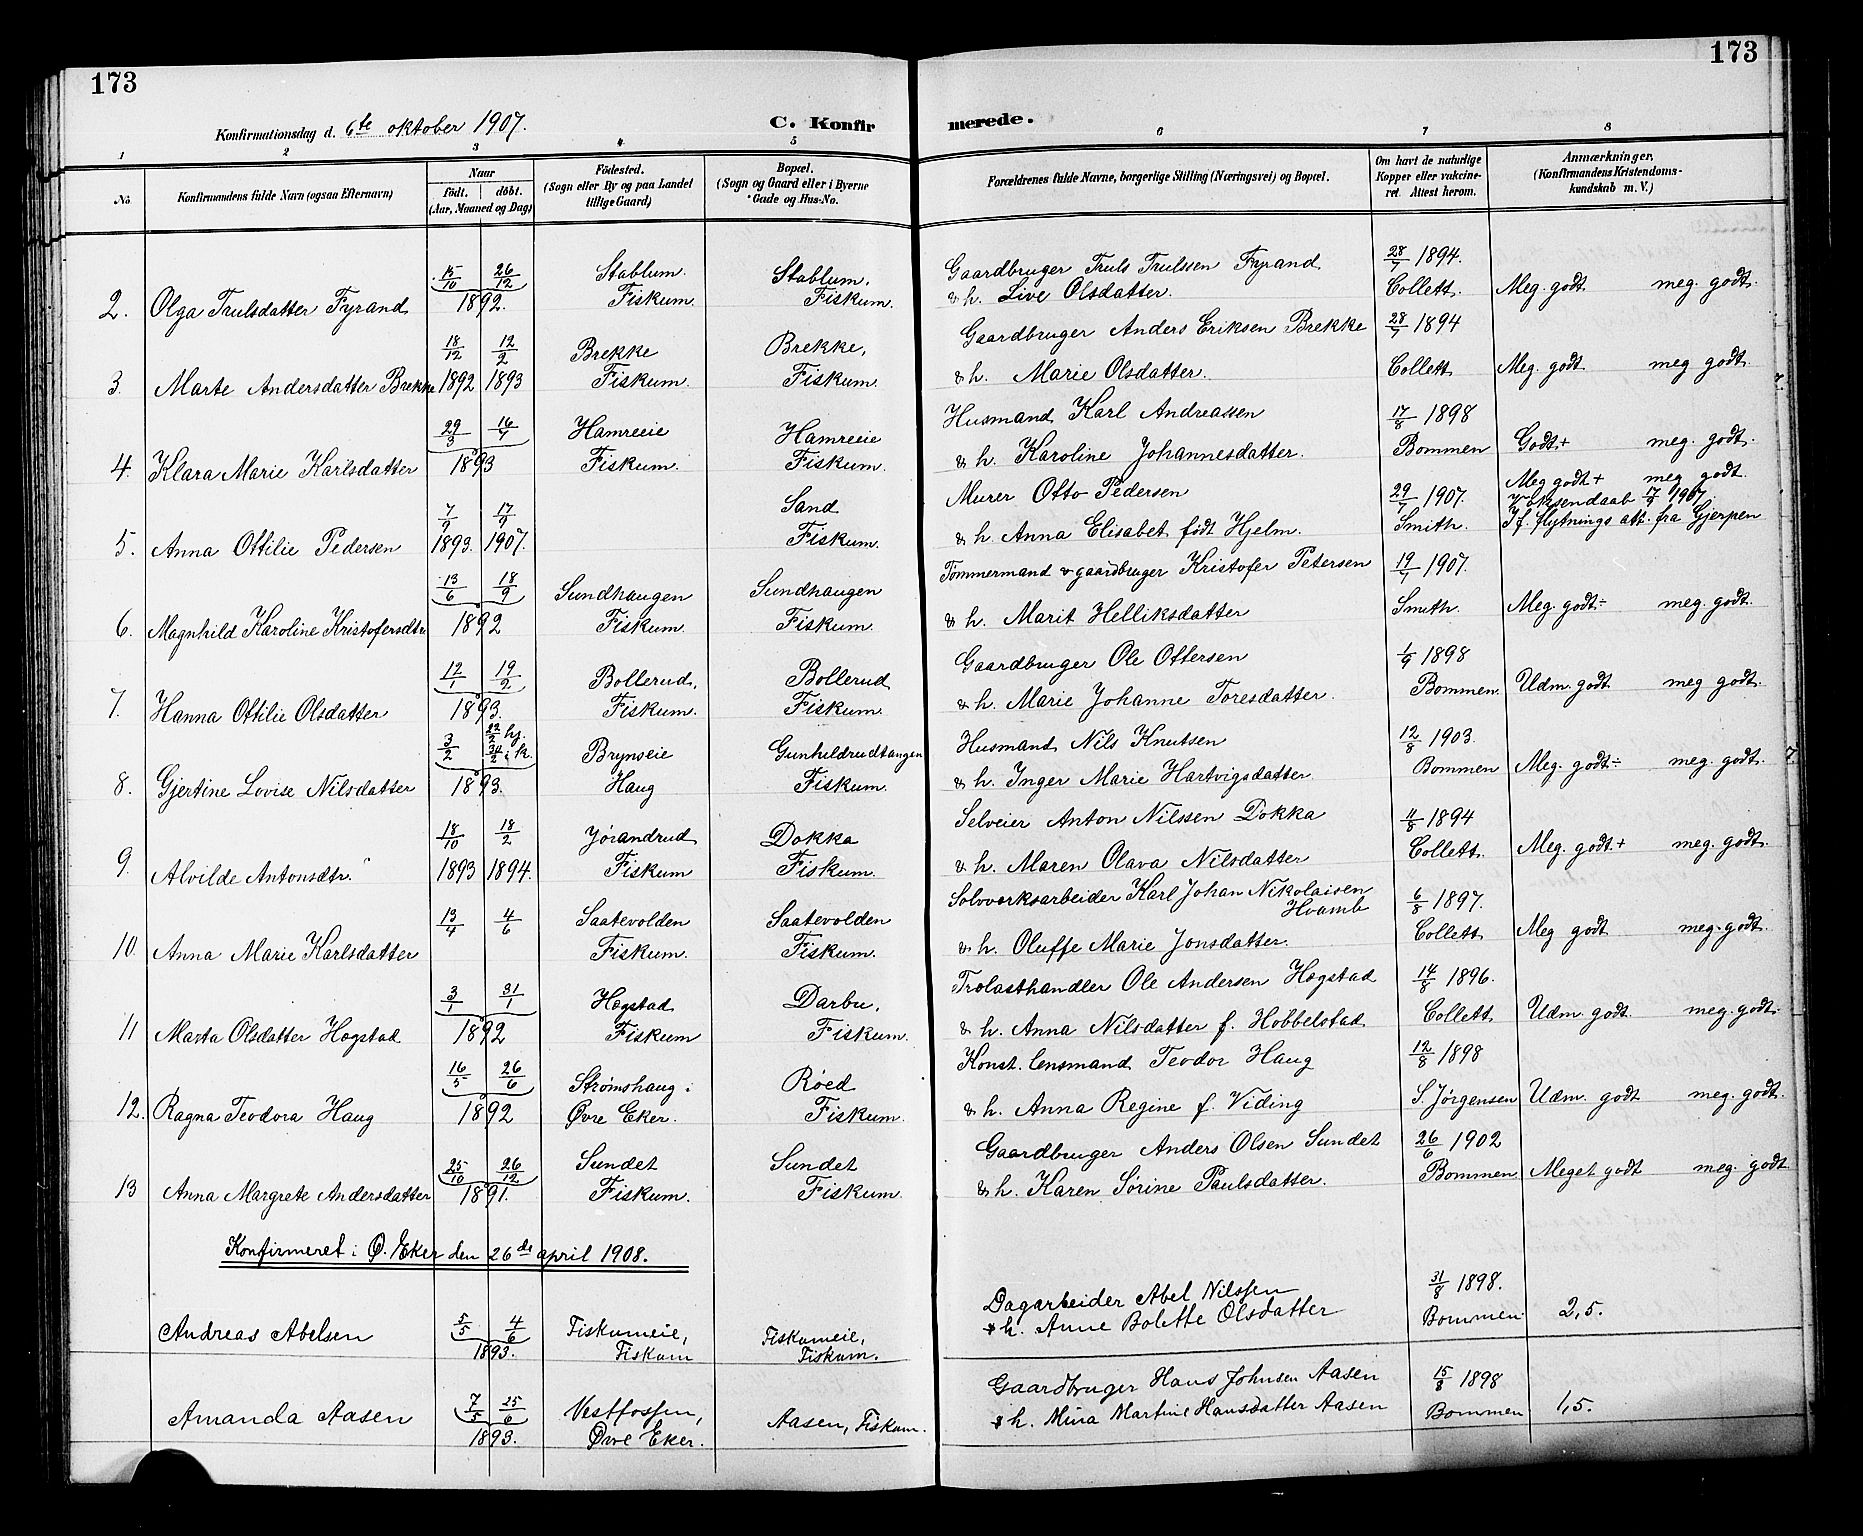 173
173
Konfirmationsdag d. 6te oktober 1907.
C. Konfirmerede.
1 2 3 4 5 6 7 8
No
Konfirmandens fulde Navn (ogsaa Efternavn)
Naar
født. døbt.
(Aar, Maaned og Dag)
Fødested.
(Sogn eller By og paa Landet
tillige Gaard)
Bopæl.
(Sogn og Gaard eller i Byerne
Gade og Hus-No.
Forældrenes fulde Navne, borgerlige Stilling (Næringsvei) og Bopæl.
Om havt de naturlige
Kopper eller vakcine-
ret. Attest herom.
Anmærkninger.
(Konfirmandens Kristendoms-
kundskab m. V.)
15/10 26/12 Stablum. Stablum. Gaardbruger Truls Trulssen Fyrand 28/7 1894.
2. Olga Trulsdatter Fyrand 1892. Fiskum. Fiskum. & h. Live Olsdatter. Collett. Meg. godt meg. godt.
18/12 12/2 Brekke Brekke, Gaardbruger Anders Eriksen Brekke 28/7 1894
3. Marte Andersdatter Brekke 1892 1893 Fiskum. Fiskum. & h. Marie Olsdatter. Collett Meg. godt meg godt.
29/3 16/7 Hamreeie Hamreeie Husmand Karl Andreassen 17/8 1898
4. Klara Marie Karlsdatter 1893 Fiskum. Fiskum. & h. Karoline Johannesdatter. Bommen Godt+ meg. godt.
7/9 17/9 Sand Murer Otto Pedersen 29/7 1907. Meg godt+ meg godt.
Voksendaab 17/9 1907.
5. Anna Ottilie Pedersen 1893. 1907. Fiskum. & h. Anna Elisabet født Hjelm. Smith. If. flytnings att. fra Gjerpen
13/6 18/9 Sundhaugen Sundhaugen Tømmermand & gaardbruger Kristofer Petersen 19/7 1907.
6. Magnhild Karoline Kristofersdtr 1892 Fiskum. Fiskum. & h. Marit Helliksdatter Smith. Meg. godt÷ meg. godt.
12/1 19/2 Bollerud, Bollerud Gaardbruger Ole Ottersen 1/9 1898
7. Hanna Ottilie Olsdatter 1893. Fiskum. Fiskum. & h. Marie Johanne Toresdatter. Bommen. Udm. godt meg godt.
3/2 22/2 hj. i k. Brynseie Gunhildrudhaugen Husmand Nils Knutsen 12/8 1903.
8. Gjertine Lovise Nilsdatter 1893. Haug Fiskum. & h. Inger Marie Hartvigsdatter Bommen Meg. godt÷ meg. godt.
18/10 18/2 Jørandrud Dokka Selveier Anton Nilssen Dokka 11/8 1894
9. Alvilde Antonsdtr. " 1893 1894. Fiskum Fiskum. & h. Maren Olava Nilsdatter Collett. Meg. godt+ meg. godt.
13/4 4/6 Saatevolden Saatevolden Solvverksarbeider Karl Johan Nikolaisen Hvamb 6/8 1897.
10. Anna Marie Karlsdatter Fiskum. Fiskum. & h. Oluffe Marie Jonsdatter. Collett Meg godt meg. godt.
3/1 31/1 Hogstad Darbu, Trælasthandler Ole Andersen Hogstad 14/8 1896.
11 Marta Olsdatter Hogstad 1892 Fiskum Fiskum. & h. Anna Nilsdatter f. Hobbelstad Collett Udm. godt. meg. godt.
16/5 26/6 Strømshaug i Røed Konst. lensmand Teodor Haug 12/8 1898
12. Ragna Teodora Haug 1892 Øvre Eker. Fiskum. & h. Anna Regine f. Viding S. Jørgensen Udm. godt meg. godt.
25/10 26/12 Sundet Sundet Gaardbruger Anders Olsen Sundet 26/6 1902
13 Anna Margrete Andersdatter 1891. Fiskum. Fiskum. & h. Karen Sørine Paulsdatter. Bommen Meget godt meg. godt
Konfirmeret i Ø. Eker den 26de april 1908.
Dagarbeider Abel Nilssen 31/8 1898.
Andreas Abelsen 5/5 4/6 Fiskumeie, Fiskumeie, & h. Anne Bolette Olsdatter Bommen 2,5.
1893. Fiskum Fiskum.
Gaardbruger Hans Johnsen Aasen 15/8 1898
Amanda Aasen 7/5 25/6 Vestfossen, Aasen, Fiskum. & h. Mina Martine Hansdatter Aasen Bommen 1,5.
1893. Øvre Eker.